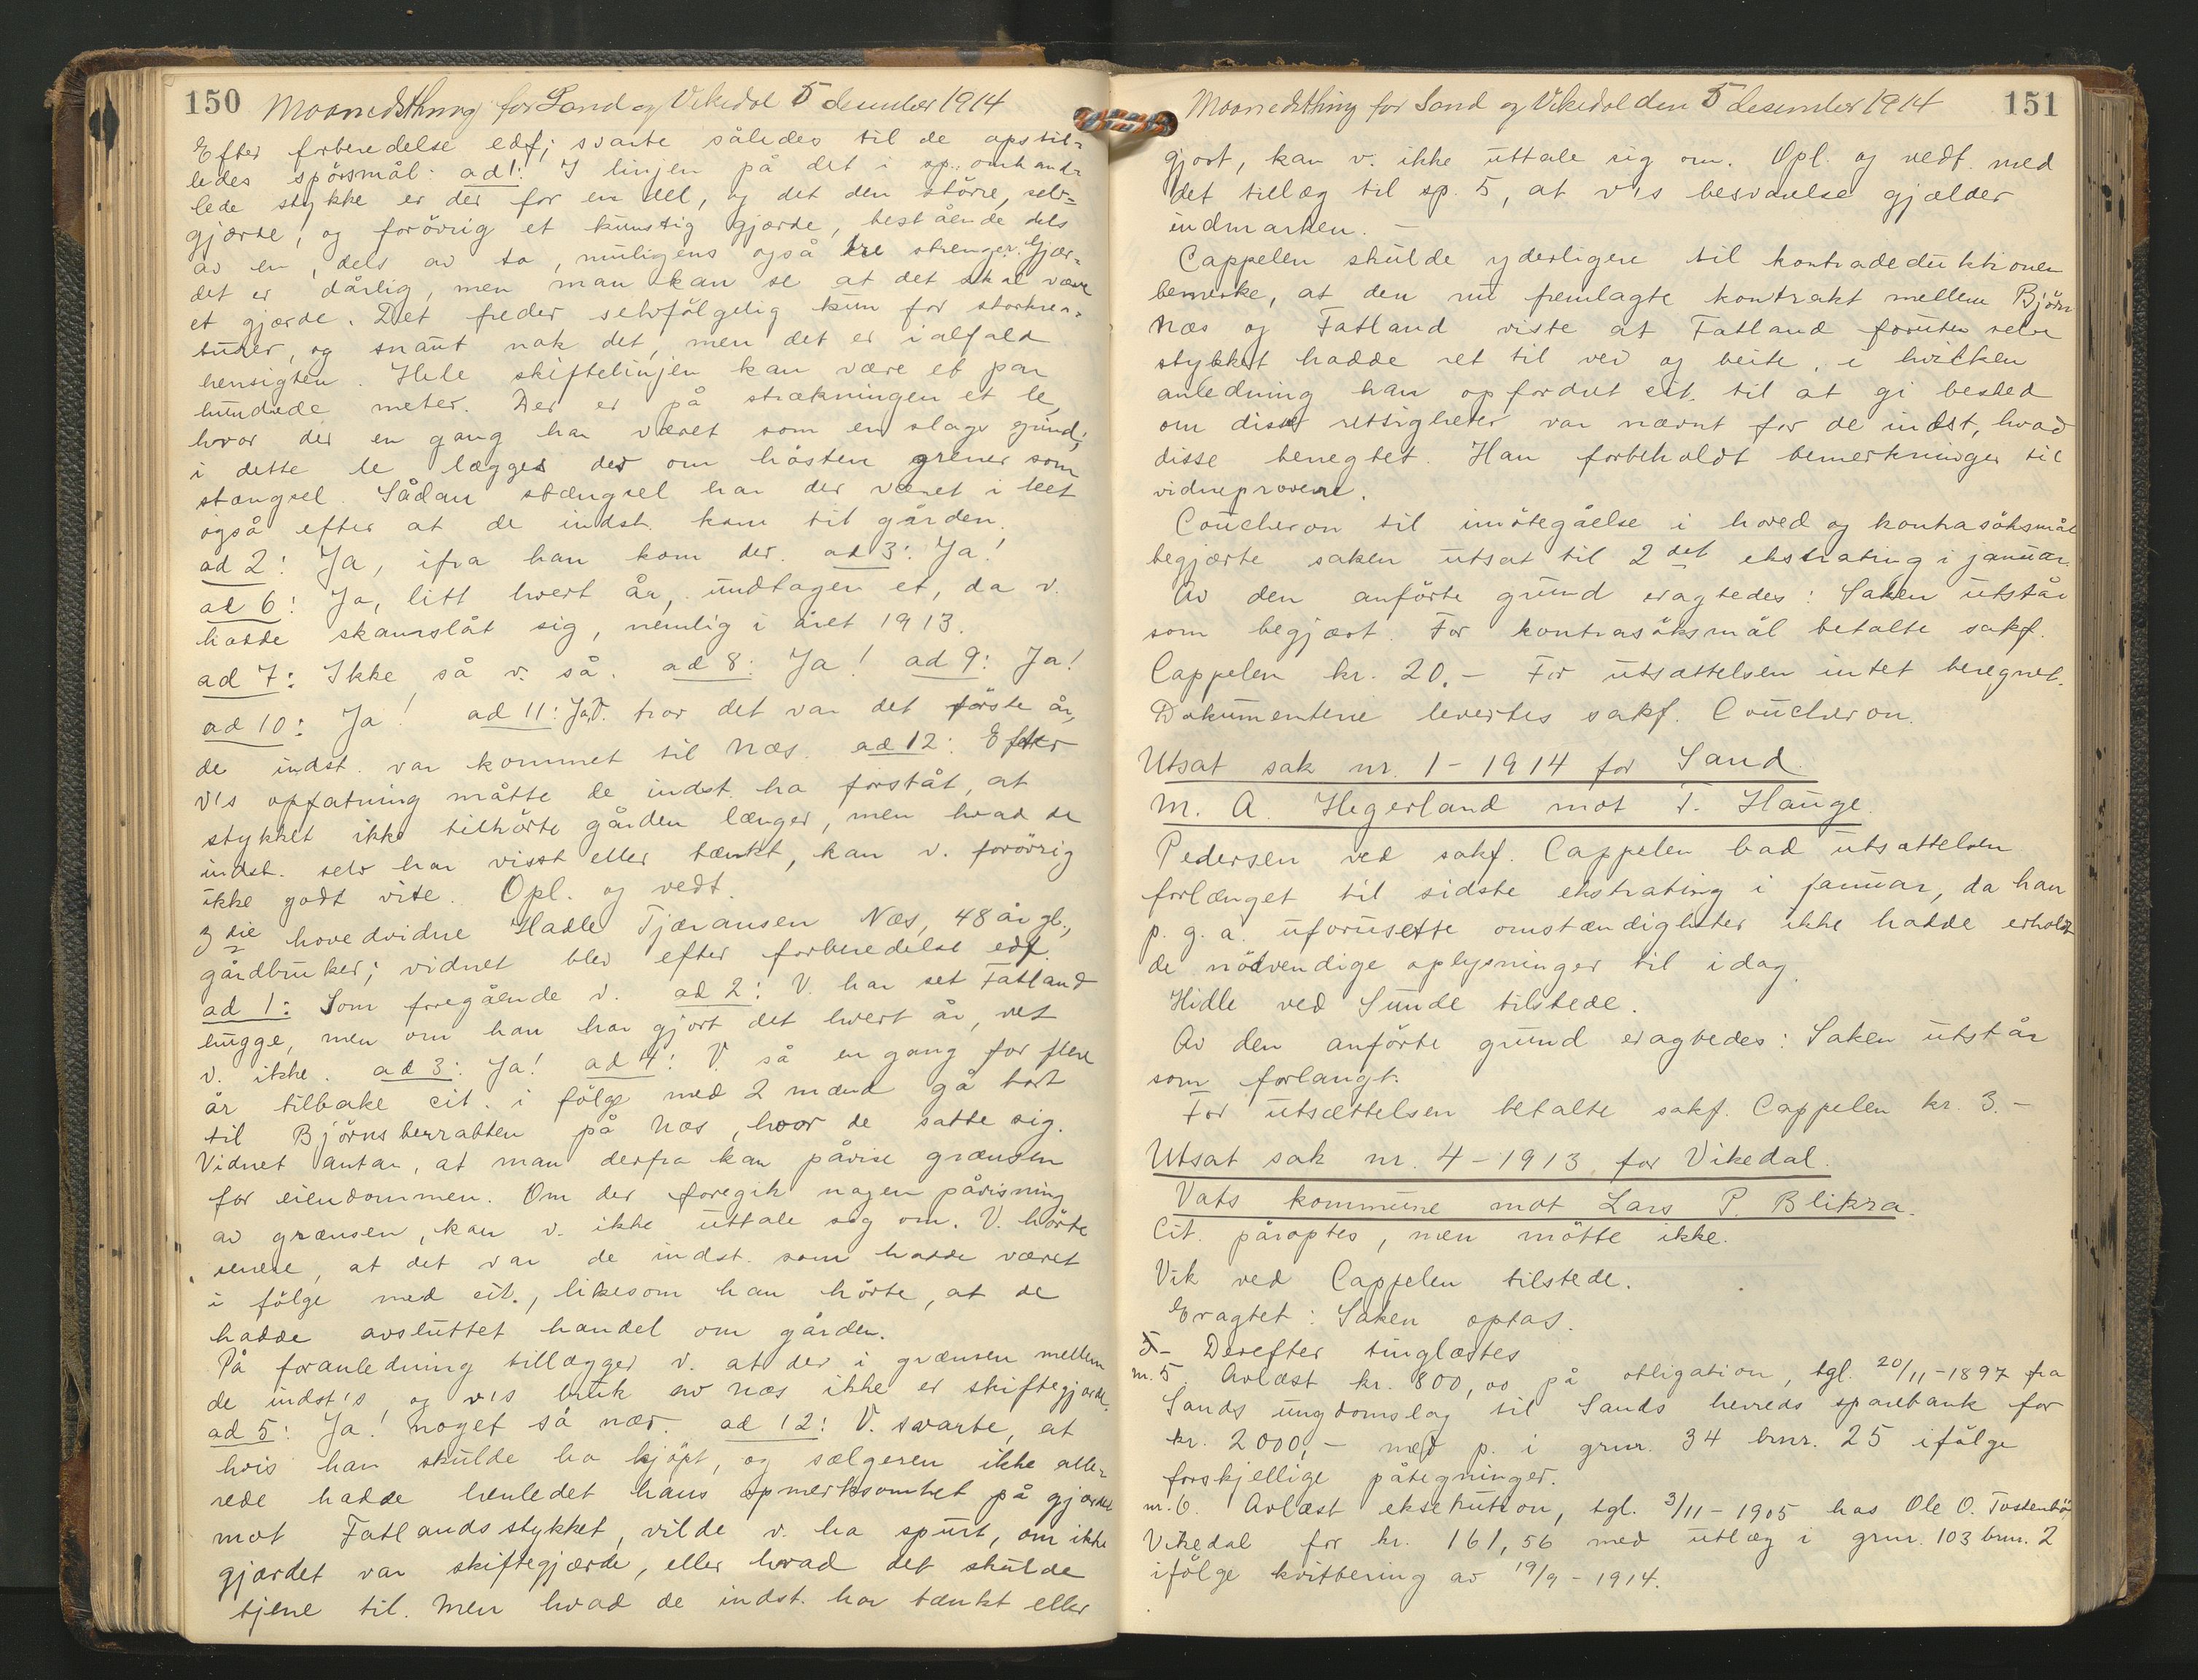 150 Moanedsthing for Sand og Vikedal 5 desember 1914
Efter forberedelse edf; svarte således til de opstil-
ledes spörsmål: ad 1: I linjen på det i sp. omhand-
lede stykke er der for en del, og det den större, selv-
gjærde, og forövrig et kunstig gjærde, bestående dels
av en, dels av to, muligens også tre strenger. Gjær-
det er dårlig, men man kan se at det skal være
et gjærde. Det freder selvfölgelig kun for storkrea-
turer, og snaut nok det, men det er ialfald
hensigten. Hele skiftelinjen kan være et par
hundrede meter. Der er på strækningen et le,
hvor der en gang har været som en slags grind;
i dette le lægges der om hösten grener som
stængsel. Sådan stængsel har der været i leet
også efter at de indst. kom til gården.
ad 2: Ja, ifra han kom der. ad 3: Ja!
ad 6: Ja, litt hvert år, undtagen et, da v.
hadde skamslåt sig, nemlig i året 1913.
ad 7: Ikke så v. så. ad 8: Ja! ad 9: Ja!
ad 10: Ja! ad 11: Ja, V. tror det var det förste år,
de indst. var kommet til Næs. ad 12: Efter
v's opfatning måtte de indst. ha forståt, at
stykket ikke tilhörte gården længer, men hvad de
indst. selv har visst eller tænkt, kan v. forövrig
ikke godt vite. Opl. og vedt.
3die hovedvidne Hadle Tjæransen Næs, 48 år gl.,
gårdbruker; vidnet blev efter forberedelse edf.
ad 1: Som foregående v. ad 2: V. har set Fatland
hugge, men om han har gjort det hvert år, vet
v. ikke. ad 3: Ja! ad 4: V. så en gang for flere
år tilbake cit. i fölge med 2 mænd gå bort
til Björnsberrabben på Næs, hvor de satte sig.
Vidnet antar, at man derfra kan påvise grænsen
for eiendommen. Om der foregik nogen påvisning
av grænsen, kan v. ikke uttale sig om. V. hörte
senere, at det var de indst. som hadde været
i fölge med cit., likesom han hörte, at de
hadde avsluttet handel om gården.
På foranledning tillægger v. at der i grænsen mellem
de indst's og v's bruk av Næs ikke er skiftegjærde.
ad 5: Ja! noget så nær. ad 12: V. svarte, at
hvis han skulde ha kjöpt, og sælgeren ikke alle-
rede hadde henledet hans opmerksomhet på gjærdet
mot Fatlandsstykket, vilde v. ha spurt, om ikke
gjærdet var skiftegjærde, eller hvad det skulde
tjene til. Men hvad de indst. har tænkt eller
Moanedsthing for Sand og Vikedal den 5 desember 1914 151
gjort, kan v. ikke uttale sig om. Opl. og vedt. med
det tillæg til sp. 5, at v's besvarelse gjælder
indmarken. –
Cappelen skulde yderligere til kontradeduktionen
bemerke, at den nu fremlagte kontrakt mellem Björn
Næs og Fatland viste at Fatland foruten selve
stykket hadde ret til ved og beite, i hvilken
anledning han opfordret cit. til at gi besked
om disse rettigheter var nævnt for de indst, hvad
disse benegtet. Han forbeholdt bemerkninger til
vidneprovene.
Coucheron til imötegåelse i hoved og kontrasöksmål
begjærte saken utsat til 2det ekstrating i januar.
Av den anförte grund eragtedes: Saken utstår
som begjært. For kontrasöksmål betalte sakf.
Cappelen kr. 20.– For utsættelsen intet beregnet.
Dokumentene levertes sakf. Coucheron.
Utsat sak nr. 1 - 1914 for Sand.
M. A. Hegerland mot T. Hauge.
Pedersen ved sakf. Cappelen bad utsættelsen
forlænget til sidste ekstrating i januar, da han
p. g. a. uforusette omstændigheter ikke hadde erholdt
de nödvendige oplysninger til idag.
Hidle ved Sunde tilstede.
Av den anförte grund eragtedes: Saken utstår
som forlangt.
For utsættelsen betalte sakf. Cappelen kr. 3.–
Utsat sak nr. 4 - 1913 for Vikedal.
Vats kommune mot Lars P. Blikra.
Cit. påroptes, men mötte ikke.
Vik ved Cappelen tilstede.
Eragtet: Saken optas.
Derefter tinglæstes
nr. 5. Avlæst kr. 800,00 på obligation, tgl. 20/11-1897 fra
Sands ungdomslag til Sands herreds sparebank for
kr. 2000,– med p. i gnr. 34 bnr. 25 ifölge
forskjellige påtegninger.
nr. 6. Avlæst eksekution, tgl. 3/11-1905 hos Ole O. Tostenbö,
Vikedal for kr. 161,56 med utlæg i gnr. 103 bnr. 2
ifölge kvittering av 19/9-1914.